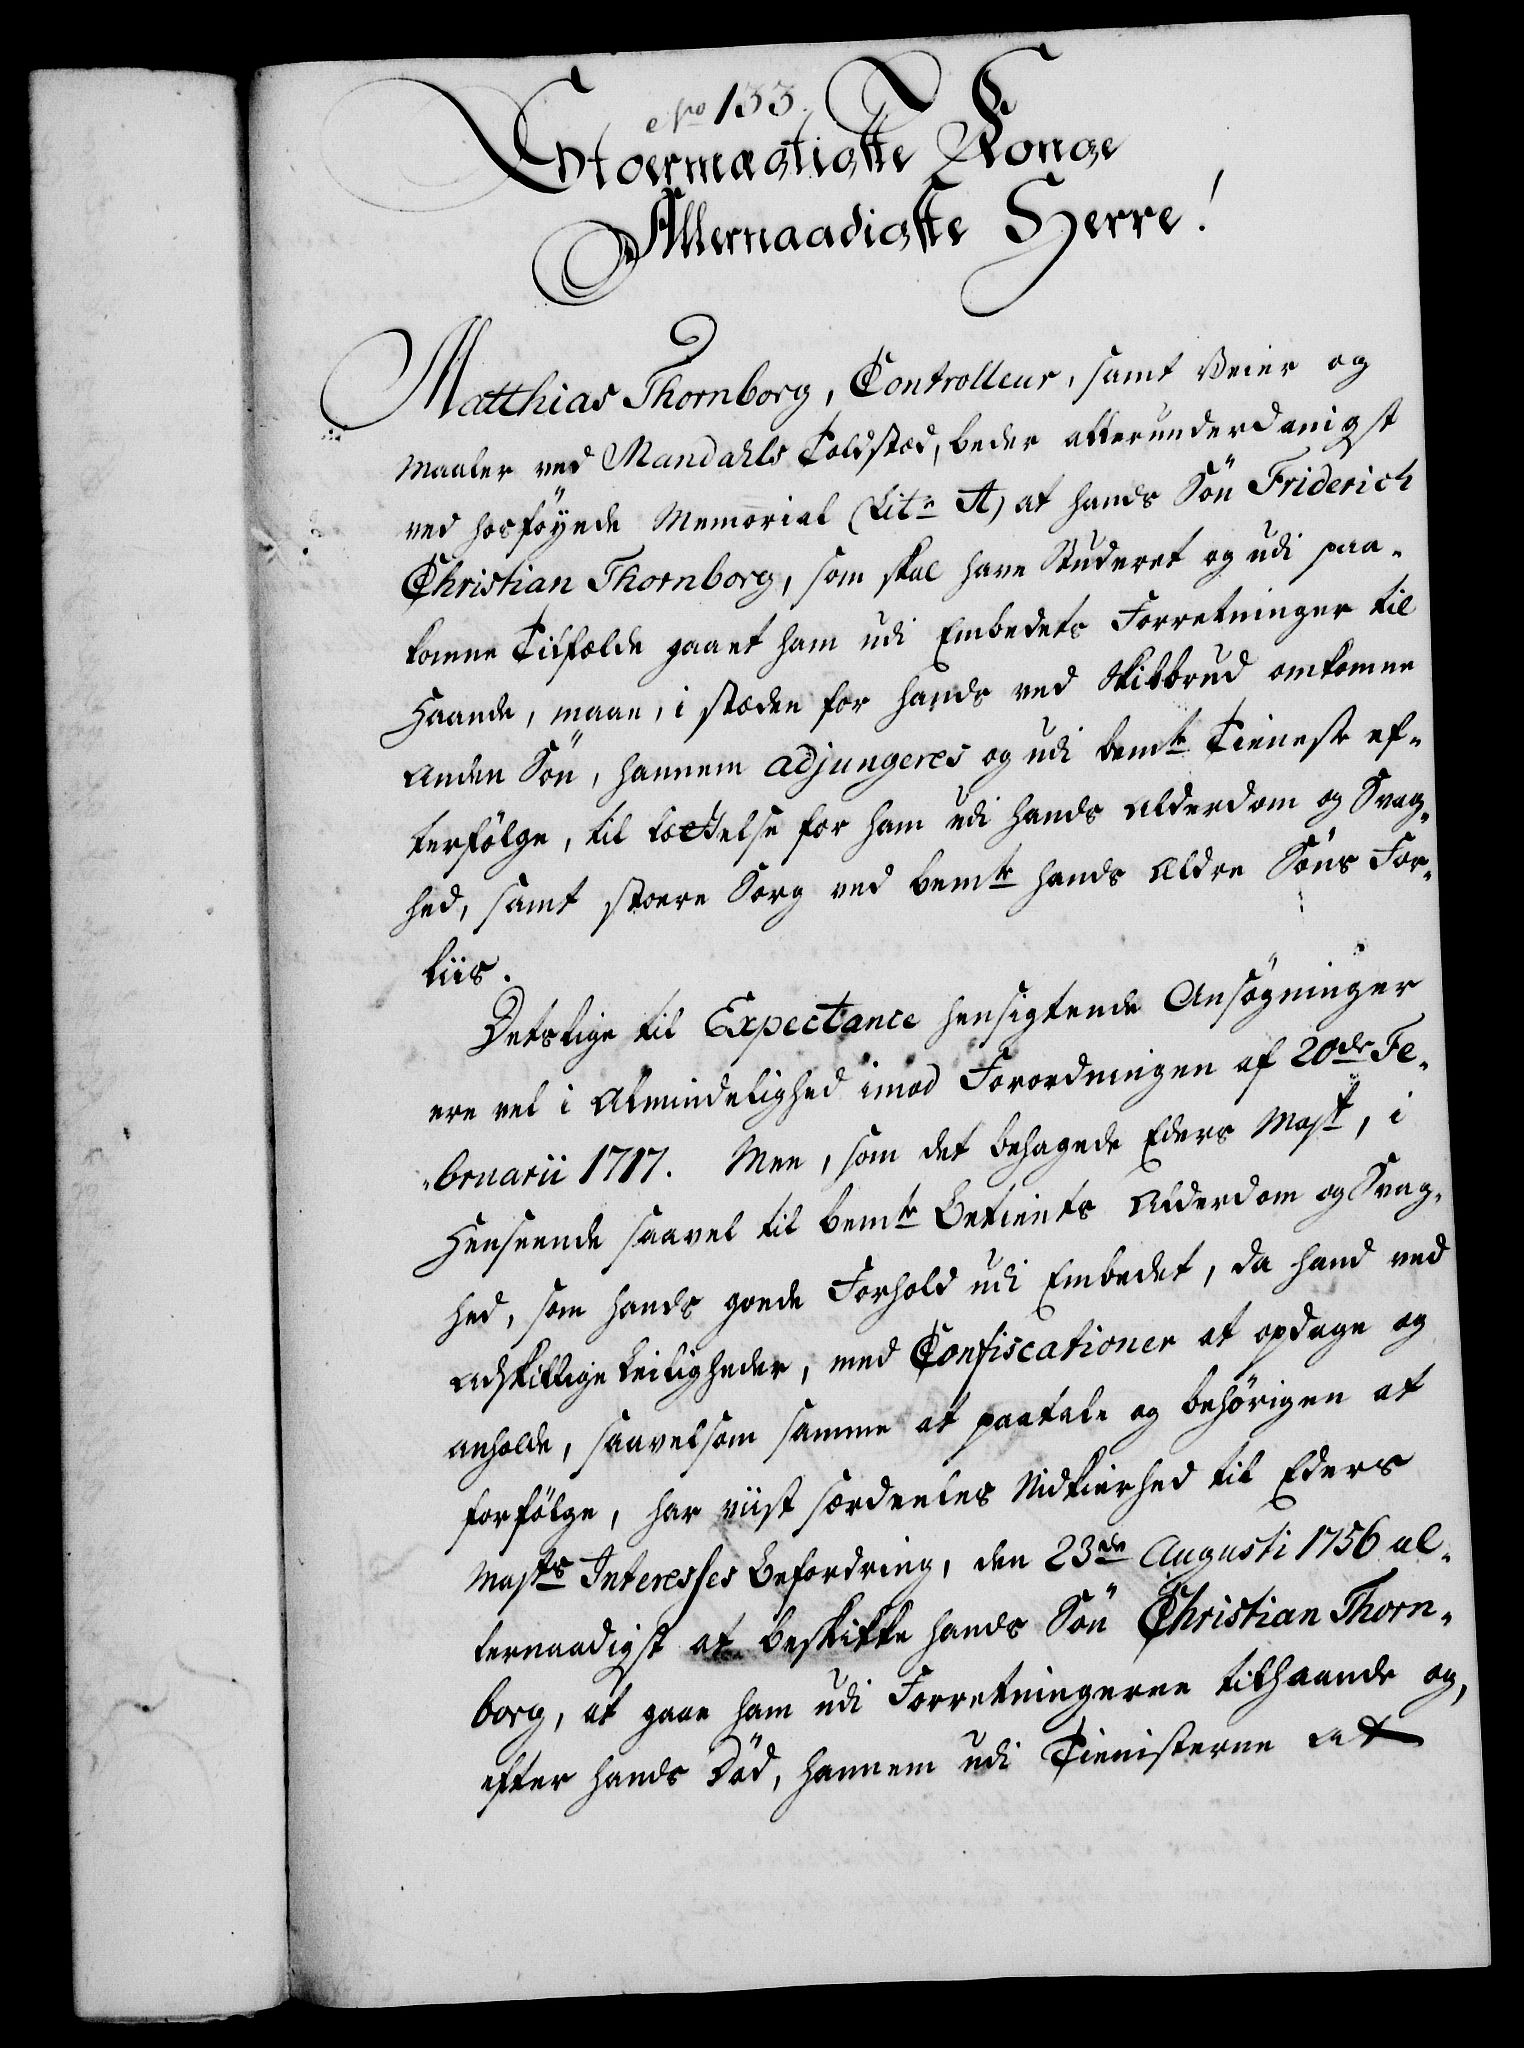 No 133.
Stoermægtigste Konge
Allernaadigste Herre!
Matthias Thornborg, Controlleur, samt Veier og
Maaler ved Mandahls Toldstæd, beder allerunderdanigst
ved hosföyede Memorial (Litr A) at hands Sön Friderich
Christian Thornborg, som skal have Studeret og udi paa-
komne Tilfælde gaaet ham udi Embedets Forretninger til
Haande, maae, i stæden for hands ved Skibbrud omkomne
Anden Sön, hannem adjungeres og udi bemte Tieneste ef-
terfölge, til Lættelse for ham udi hands Alderdom og Svag-
hed, samt stoere Sorg ved bemte hands Ældre Söns For-
liis.
Detslige til Expectance hensigtende Ansögninger
ere vel i Almindelighed imod Forordningen af 20de Fe-
bruarii 1717. Men, som det behagede Eders Mayst, i
Henseende saavel til bemte Betients Alderdom og Svag-
hed, som hands goede Forhold udi Embedet, da hand ved
adskillige Leiligheder, med Confiscationer at opdage og
anholde, saavelsom samme at paatale og behörigen at
forfölge, har viist særdeeles Nidkierhed til Eders
Maysts Interesses Befordring, den 23de Augusti 1756 al-
lernaadigst at beskikke hands Sön Christian Thorn-
borg, at gaae ham udi Forretningerne tilhaande og,
efter hands Död, hannem udi Tienisterne at